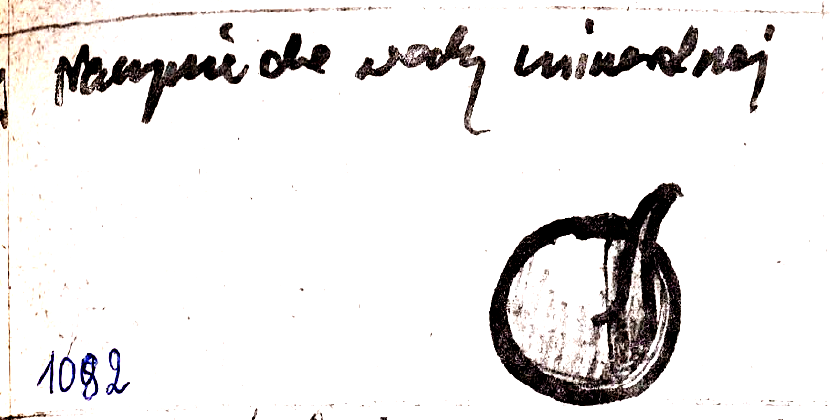 Naczynie dla wody mineralnej
1082